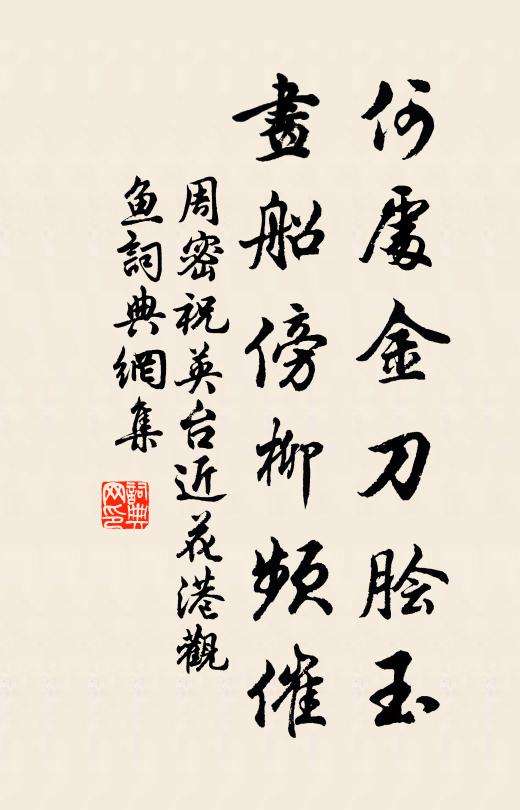 何處金刀膾玉
畫船傍柳頻催
周密祝英台近花港觀
魚詞典網集
詞典
网印